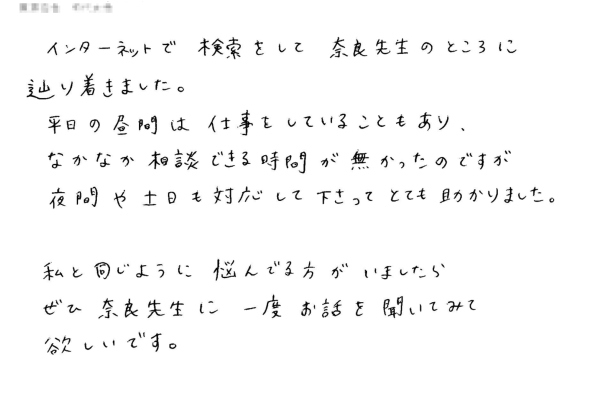 インターネットで 検索をして 奈良先生のところに
辿り着きました。
平日の昼間は 仕事をしていることもあり、
なかなか相談できる時間が無かったのですが
夜間や土日も対応して下さってとても助かりました。
私と同じように 悩んでる方がいましたら
ぜひ 奈良先生に 一度お話を聞いてみて
欲しいです。